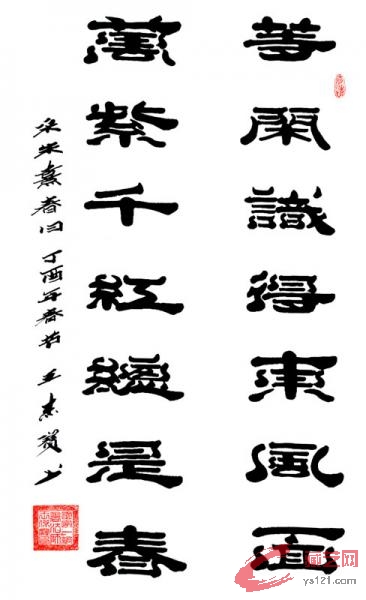 等閑識得東風面
萬紫千紅總是春
宋朱熹春日 丁酉年春节 王
ys121.com